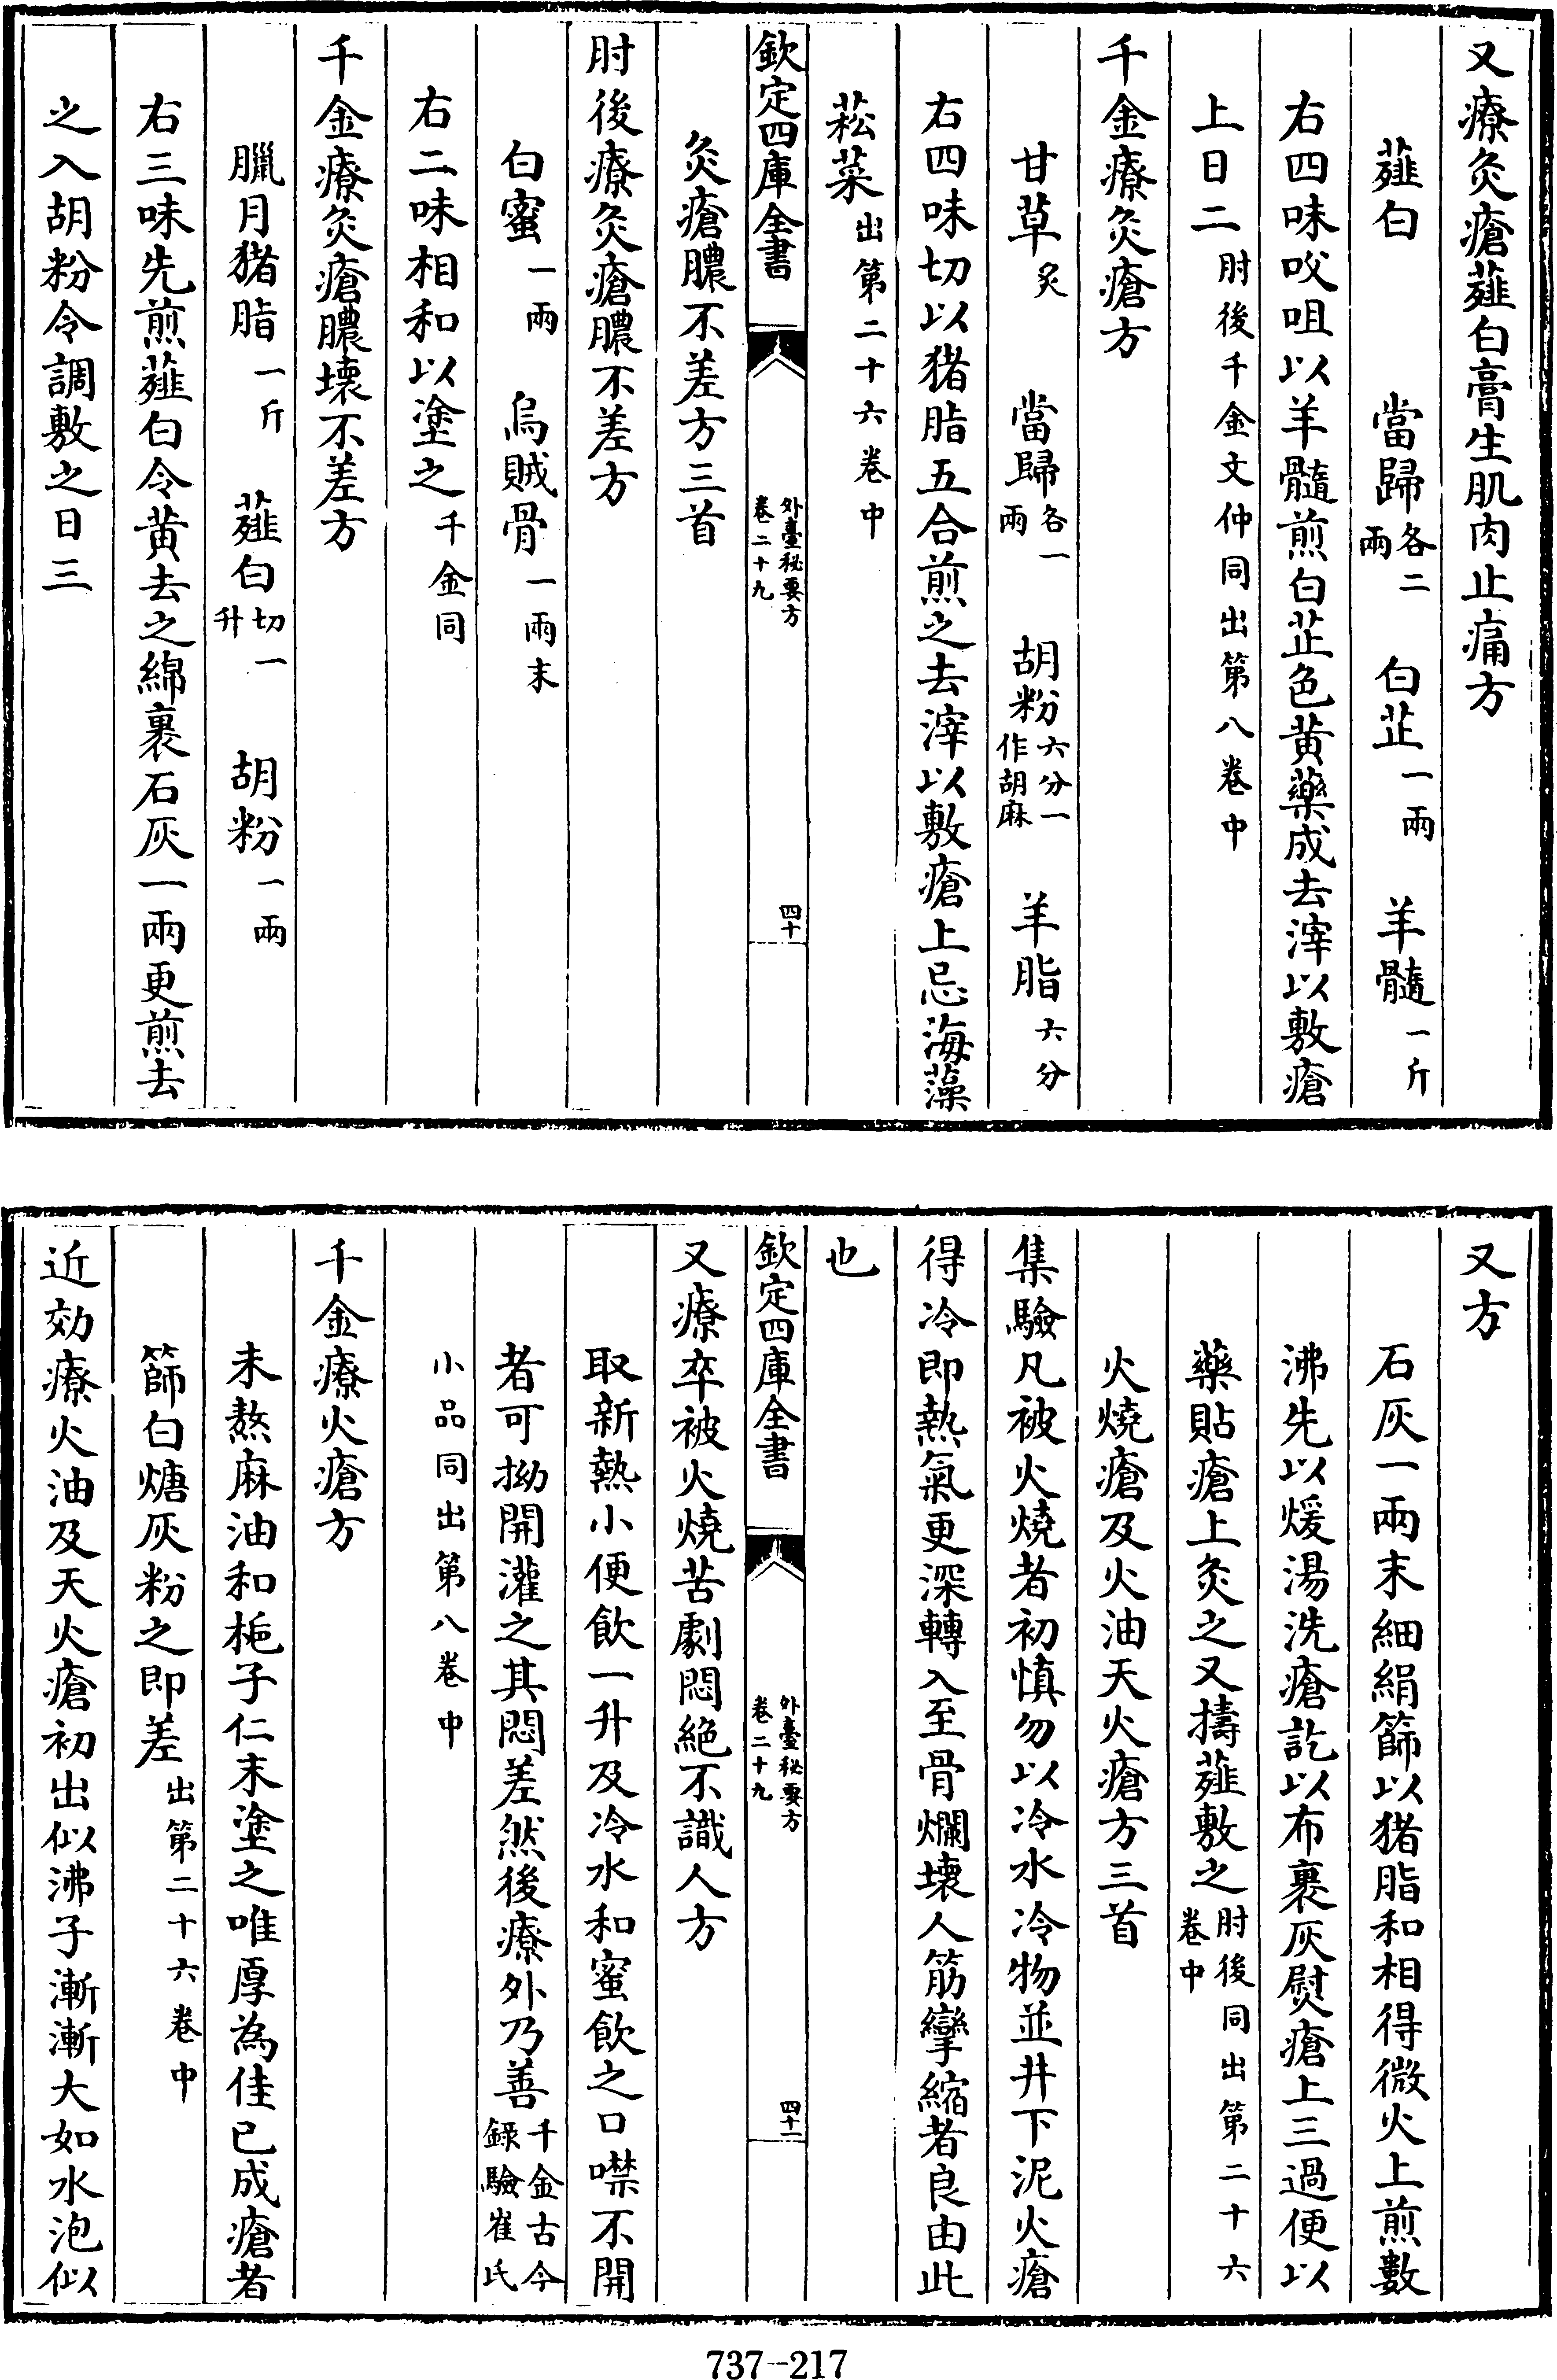 又療灸瘡薤白膏生肌肉止痛方
薤白 當歸各二兩 白芷一兩 羊髓一斤
右四味㕮咀以羊髓煎白芷色黄藥成去滓以敷瘡
上日二肘後千金文仲同出第八卷中
千金療灸瘡方
甘草炙 當歸各一兩 胡粉六分一作胡麻 羊脂六分
右四味切以猪脂五合煎之去滓以敷瘡上忌海藻
菘菜出第二十六卷中
欽定四庫全書 外臺秘要方卷二十九 四十
灸瘡膿不差方三首
肘後療灸瘡膿不差方
白蜜一兩 烏賊骨一兩末
右二味相和以塗之千金同
千金療灸瘡膿壊不差方
臘月猪脂一斤 薤白切一升 胡粉一兩
右三味先煎薤白令黄去之綿裹石灰一兩更煎去
之入胡粉令調敷之日三
又方
石灰一兩末細絹篩以猪脂和相得微火上煎數
沸先以煖湯洗瘡訖以布裹灰熨瘡上三過便以
藥貼瘡上灸之又擣薤敷之肘後同出第二十六卷中
火燒瘡及火油天火瘡方三首
集驗凡被火燒者初慎勿以冷水冷物並井下泥火瘡
得冷即熱氣更深轉入至骨爛壊人筋攣縮者良由此
也
欽定四庫全書 外臺秘要方卷二十九 四十一
又療卒被火燒苦劇悶絶不識人方
取新熱小便飲一升及冷水和蜜飲之口噤不開
者可拗開灌之其悶差然後療外乃善千金古今錄驗崔氏
小品同出第八卷中
千金療火瘡方
未熬麻油和梔子仁末塗之唯厚為佳已成瘡者
篩白煻灰粉之即差出第二十六卷中
近効療火油及天火瘡初出似沸子漸漸大如水泡似
737-217